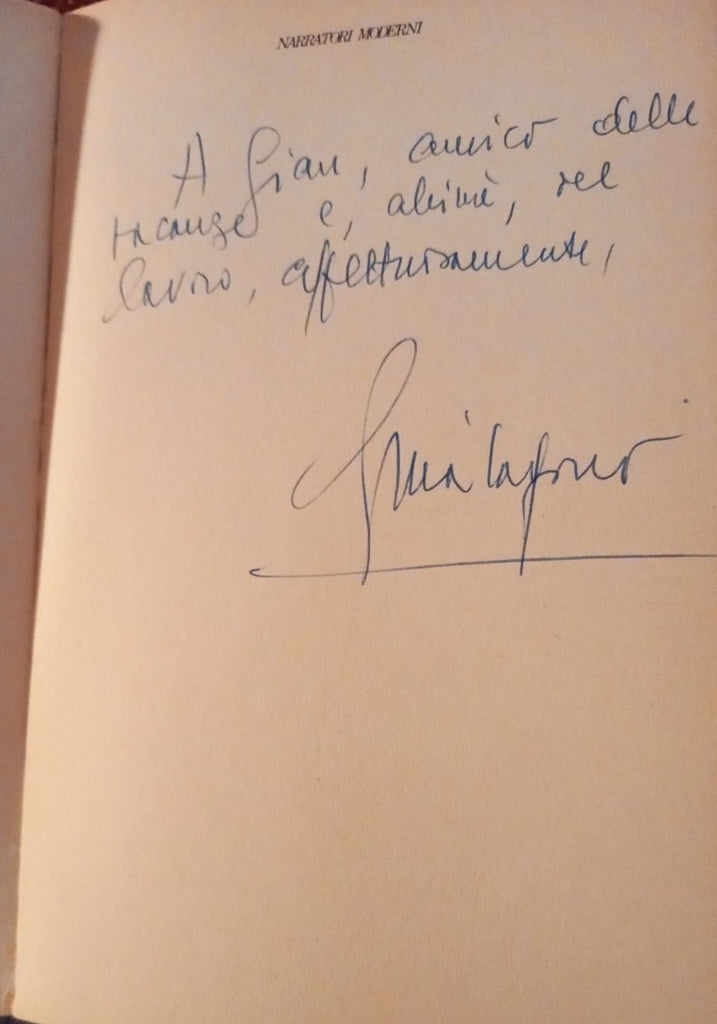 NARRATORI MODERNI
A Gian, amico delle
vacanze e, ahimè, del
lavoro, affettuosamente,
Gina Lagorio